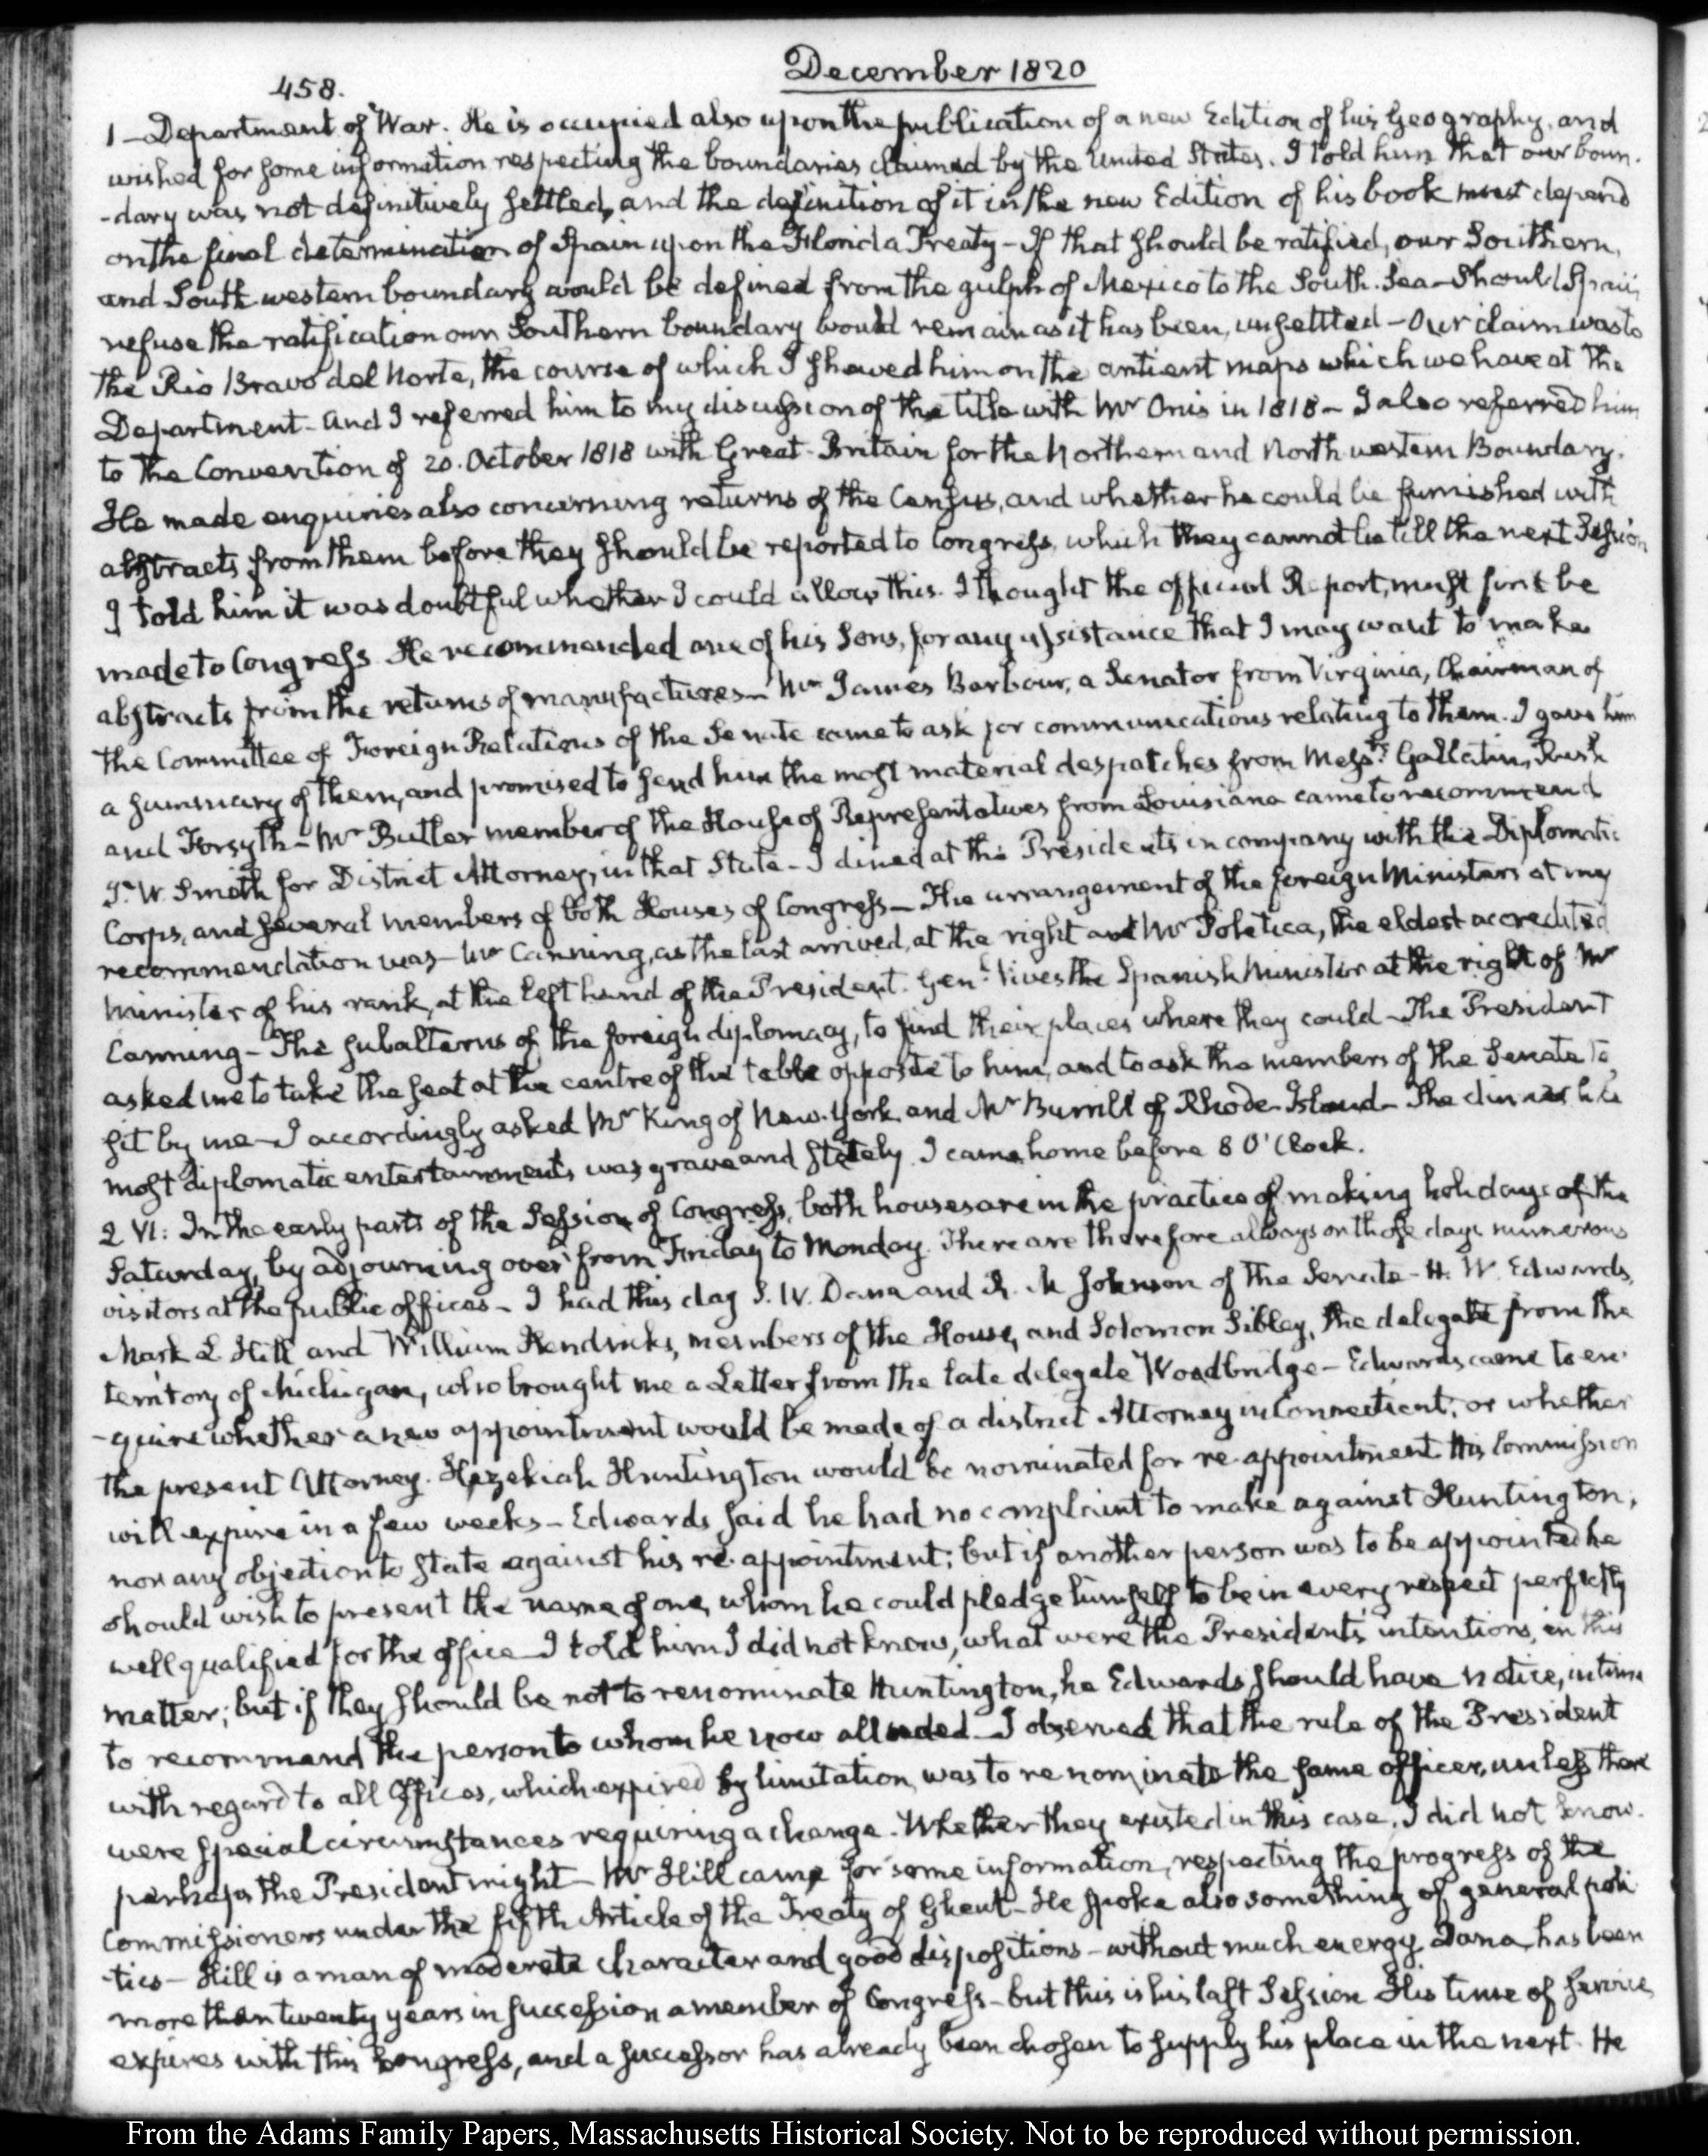 458.
December 1820
1 — Department of War. He is occupied also upon the publication of a new Edition of his Geography, and
wished for some information respecting the boundaries claimed by the United States. I told him that our boun-
-dary was not definitively settled, and the definition of it in the new Edition of his book must depend
on the final determination of Spain upon the Florida Treaty — If that should be ratified, our Southern,
and South western boundary would be defined from the gulph of Mexico to the South-Sea — Should Spain
refuse the ratification our Southern boundary would remain as it has been, unsettled — Our claim was to
the Rio Bravo del Norte, the course of which I shewed him on the antient maps which we have at the
Department — and I referred him to my discussion of the title with Mr Onis in 1818 — I also referred him
to the Convention of 20. October 1818 with Great-Britain for the Northern and North western Boundary.
He made enquiries also concerning returns of the Census, and whether he could be furnished with
abstracts from them before they should be reported to Congress, which they cannot be till the next Session
I told him it was doubtful whether I could allow this. I thought the official Report, must first be
made to Congress. He recommended one of his Sons, for any assistance that I may want to make
abstracts from the returns of manufactures — Mr James Barbour, a Senator from Virginia, Chairman of
the Committee of Foreign Relations of the Senate came to ask for communications relating to them. I gave him
a summary of them, and promised to send him the most material despatches from Messrs. Gallatin, Rush
and Forsyth — Mr Butler member of the House of Representatives from Louisiana came to recommend
J. W. Smith for District Attorney, in that State — I dined at the Presidents in company with the Diplomatic
Corps, and several members of both Houses of Congress — The arrangement of the foreign Ministers at my
recommendation was — Mr Canning, as the last arrived, at the right and Mr Poletica, the eldest accredited
Minister of his rank, at the left hand of the President. Genl. Vives the Spanish Minister at the right of Mr
Canning — The subalterns of the foreign diplomacy, to find their places where they could — The President
asked me to take the seat at the centre of the table opposite to him, and to ask the members of the Senate to
sit by me — I accordingly asked Mr King of New-York and Mr Burrill of Rhode-Island — The dinner like
most diplomatic entertainments was grave and stately. I came home before 8 O'Clock.
2 VI: In the early parts of the Session of Congress, both houses are in the practice of making holidays of the
Saturday, by adjourning over from Friday to Monday. There are therefore always on those days numerous
visitors at the public offices — I had this day S. W. Dana and R. M Johnson of the Senate — H. W. Edwards,
Mark L Hill and William Hendricks, members of the House, and Solomon Sibley, the delegate from the
territory of Michigan, who brought me a Letter from the late delegate Woodbridge — Edwards came to en-
-quire whether a new appointment would be made of a district Attorney in Connecticut; or whether
the present Attorney. Hezekiah Huntington would be nominated for re-appointment. His Commission
will expire in a few weeks — Edwards said he had no complaint to make against Huntington;
nor any objection to state against his re-appointment; but if another person was to be appointed he
should wish to present the name of one, whom he could pledge himself to be in every respect perfectly
well qualified for the office — I told him I did not know, what were the Presidents' intentions, in this
matter; but if they should be not to renominate Huntington, he Edwards should have notice, in time
to recommend the person to whom he now alluded — I observed that the rule of the President
with regard to all Offices, which expired by limitation, was to renominate the same officer, unless there
were special circumstances requiring a change. Whether they existed in this case, I did not know.
perhaps the President might — Mr Hill came for some information, respecting the progress of the
Commissioners under the fifth Article of the Treaty of Ghent — He spoke also something of general poli
-tics — Hill is a man of moderate character and good dispositions — without much energy. Dana has been
more than twenty years in succession a member of Congress — but this is his last Session His time of service
expires with this Congress, and a successor has already been chosen to supply his place in the next. He
From the Adams Family Papers, Massachusetts Historical Society. Not to be reproduced without permission.